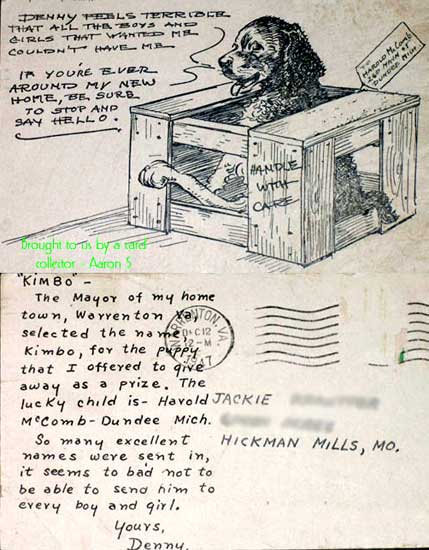 DENNY FEELS TERRIBLE
THAT ALL THE BOYS AND
GIRLS THAT WANTED ME
COULDN'T HAVE ME
IF YOU'RE EVER
AROUND MY NEW
HOME, BE SURE
TO STOP AND
SAY HELLO.
TO
HAROLD McComb
MAIN ST
DUNDEE MICH
HANDLE
WITH
CARE
Brought to us by a card
collector - Aaron S
"KIMBO" -
The Mayor of my home
town, Warrenton Va,
selected the name,
Kimbo, for the puppy
that I offered to give
away as a prize. The
lucky child is - Harold
McComb - Dundee Mich.
So many excellent
names were sent in,
it seems to bad not to
be able to send him to
every boy and girl.
Yours,
Denny.
WARRENTON, VA.
DEC 12
12-M
1947
JACKIE
HICKMAN MILLS, MO.